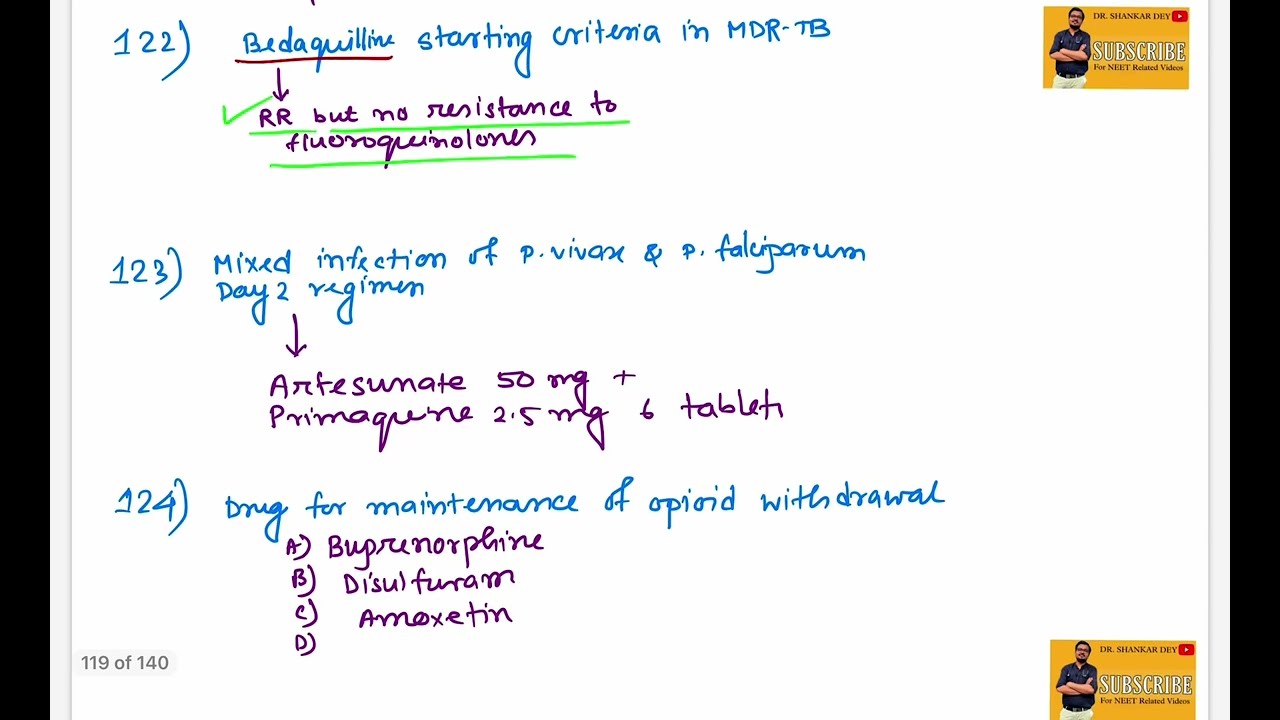 DR. SHANKAR DEY
SUBSCRIBE
For NEET Related Videos
122) Bedaquilline starting criteria in MDR-TB
RR but no resistance to
fluoroquinolones
123) Mixed infection of P. vivax & P. falciparum
Day 2 regimen
Artesunate 50 mg +
Primaquine 2.5 mg 6 tablets
124) Drug for maintenance of opioid withdrawal
A) Buprenorphine
B) Disulfuram
C) Amoxetin
D)
119 of 140
DR. SHANKAR DEY
SUBSCRIBE
For NEET Related Videos